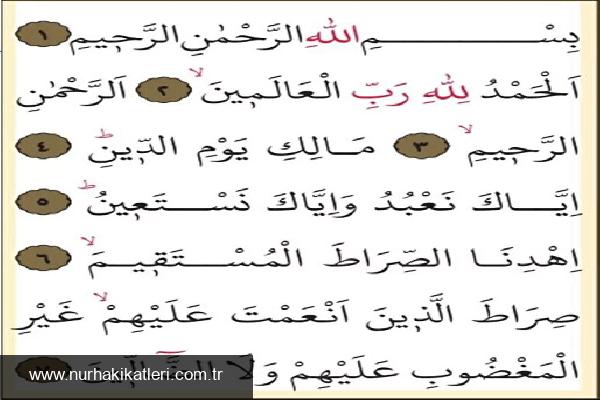 بِسْمِ اللّٰهِ الرَّحْمٰنِ الرَّحٖيمِ ١
اَلْحَمْدُ لِلّٰهِ رَبِّ الْعَالَمٖينَ ۙ ٢ اَلرَّحْمٰنِ
الرَّحٖيمِ ۙ ٣ مَالِكِ يَوْمِ الدّٖينِ ۜ ٤
اِيَّاكَ نَعْبُدُ وَاِيَّاكَ نَسْتَعٖينُ ۜ ٥
اِهْدِنَا الصِّرَاطَ الْمُسْتَقٖيمَ ۙ ٦
صِرَاطَ الَّذٖينَ اَنْعَمْتَ عَلَيْهِمْ ۙ غَيْرِ
الْمَغْضُوبِ عَلَيْهِمْ وَلَا الضَّٓالّٖينَ ٧
www.nurhakikatleri.com.tr